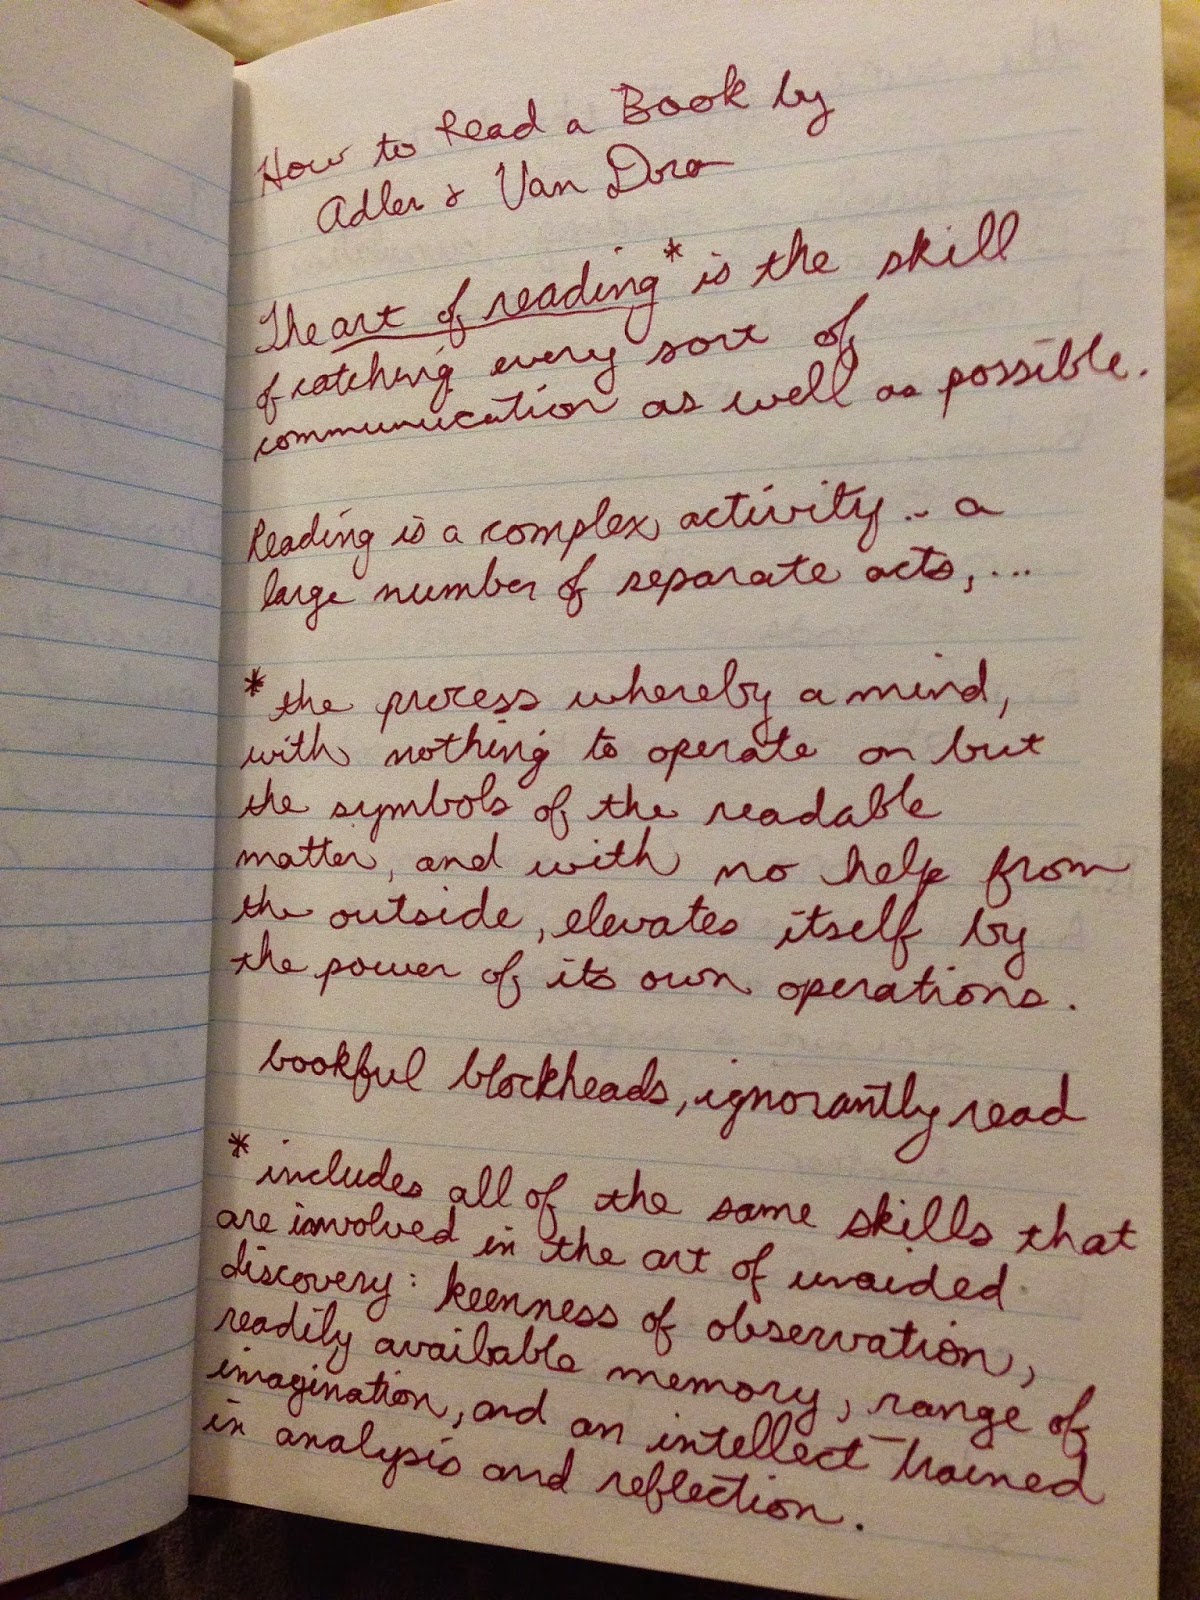 How to Read a Book by
Adler & Van Dora
The art of reading* is the skill
of catching every sort of
communucation as well as possible.
Reading is a complex activity .. a
large number of separate acts, ...
* the process whereby a mind,
with nothing to operate on but
the symbols of the readable
matter, and with no help from
the outside, elevates itself by
the power of its own operations.
bookful blockheads, ignorantly read
* includes all of the same skills that
are involved in the art of unaided
discovery: keenness of observation,
readily available memory, range of
imagination, and an intellect trained
in analysis and reflection.